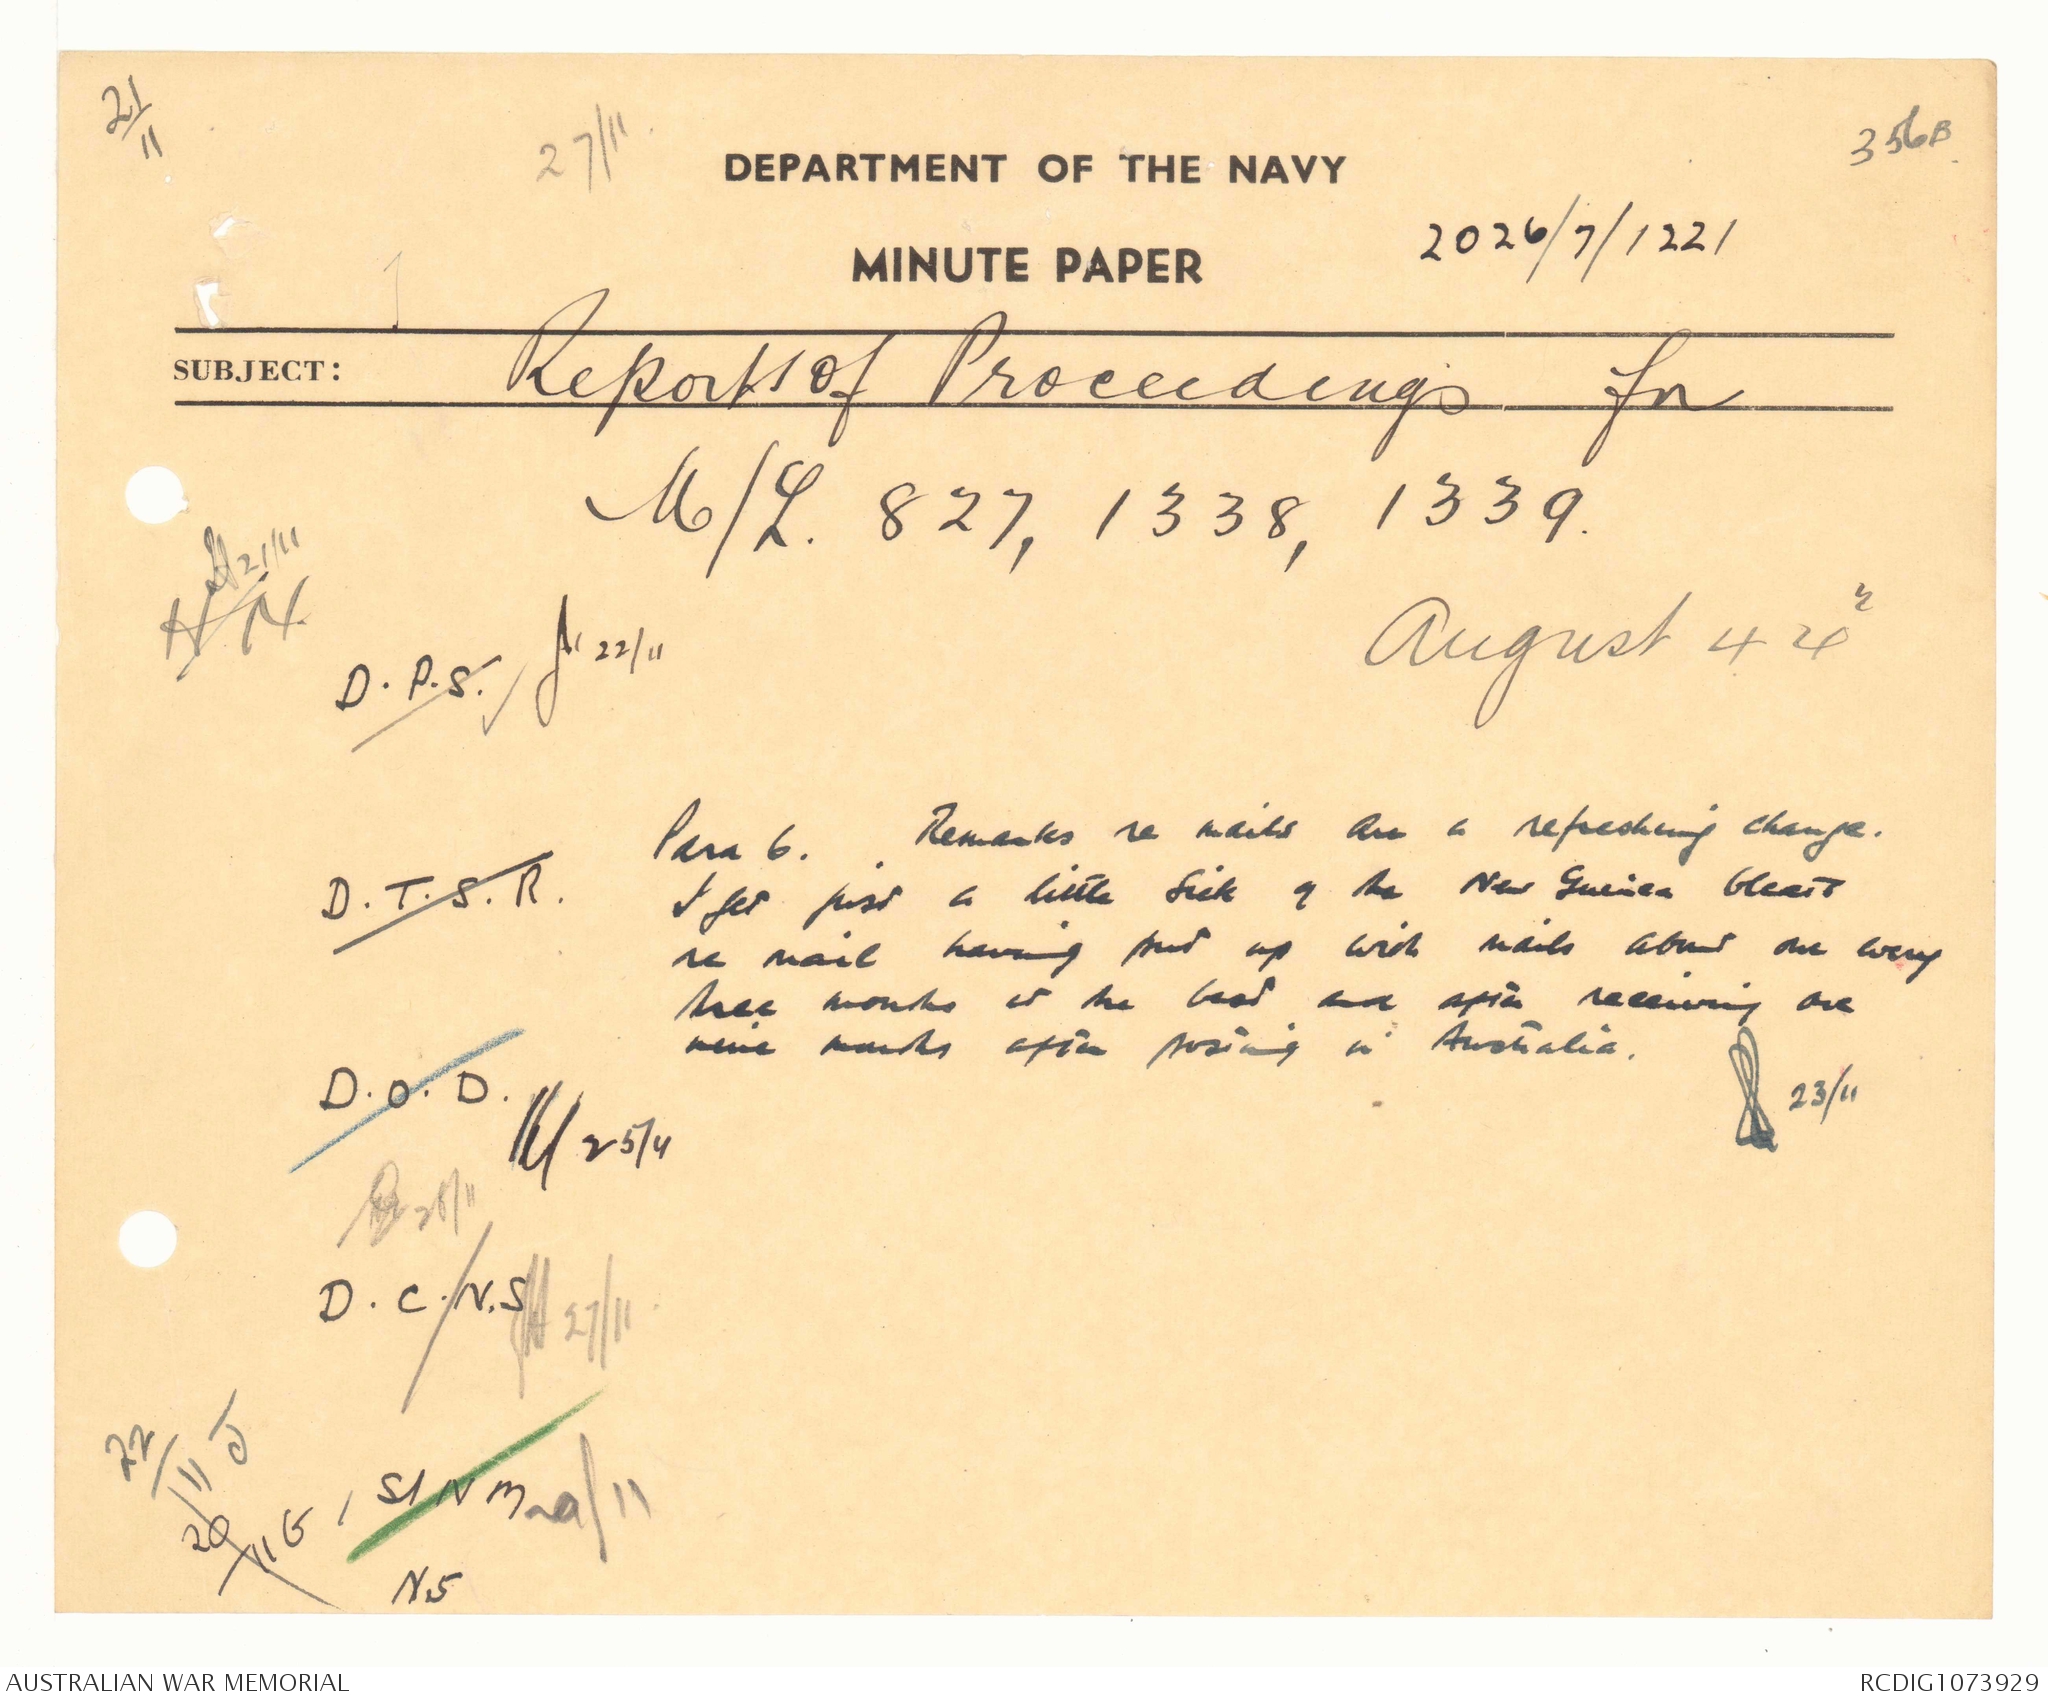 21/11
27/11.
356B
DEPARTMENT OF THE NAVY
2026/7/1221
MINUTE PAPER
SUBJECT: Reports of Proceedings for
M/L. 827, 1338, 1339.
21/11
August 44
D.P.S. 22/11
D.T.S.R.
Para 6. Remarks re mails are a refreshing change.
I get just a little sick of the New Guinea bleats
re mail having put up with mails about one every
three months at the best and after receiving one
nine months after posting in Australia.
23/11
D.O.D. 25/11
D.C.N.S 27/11.
22/11
20/11 G
SINM 29/11
NS
AUSTRALIAN WAR MEMORIAL
RCDIG1073929